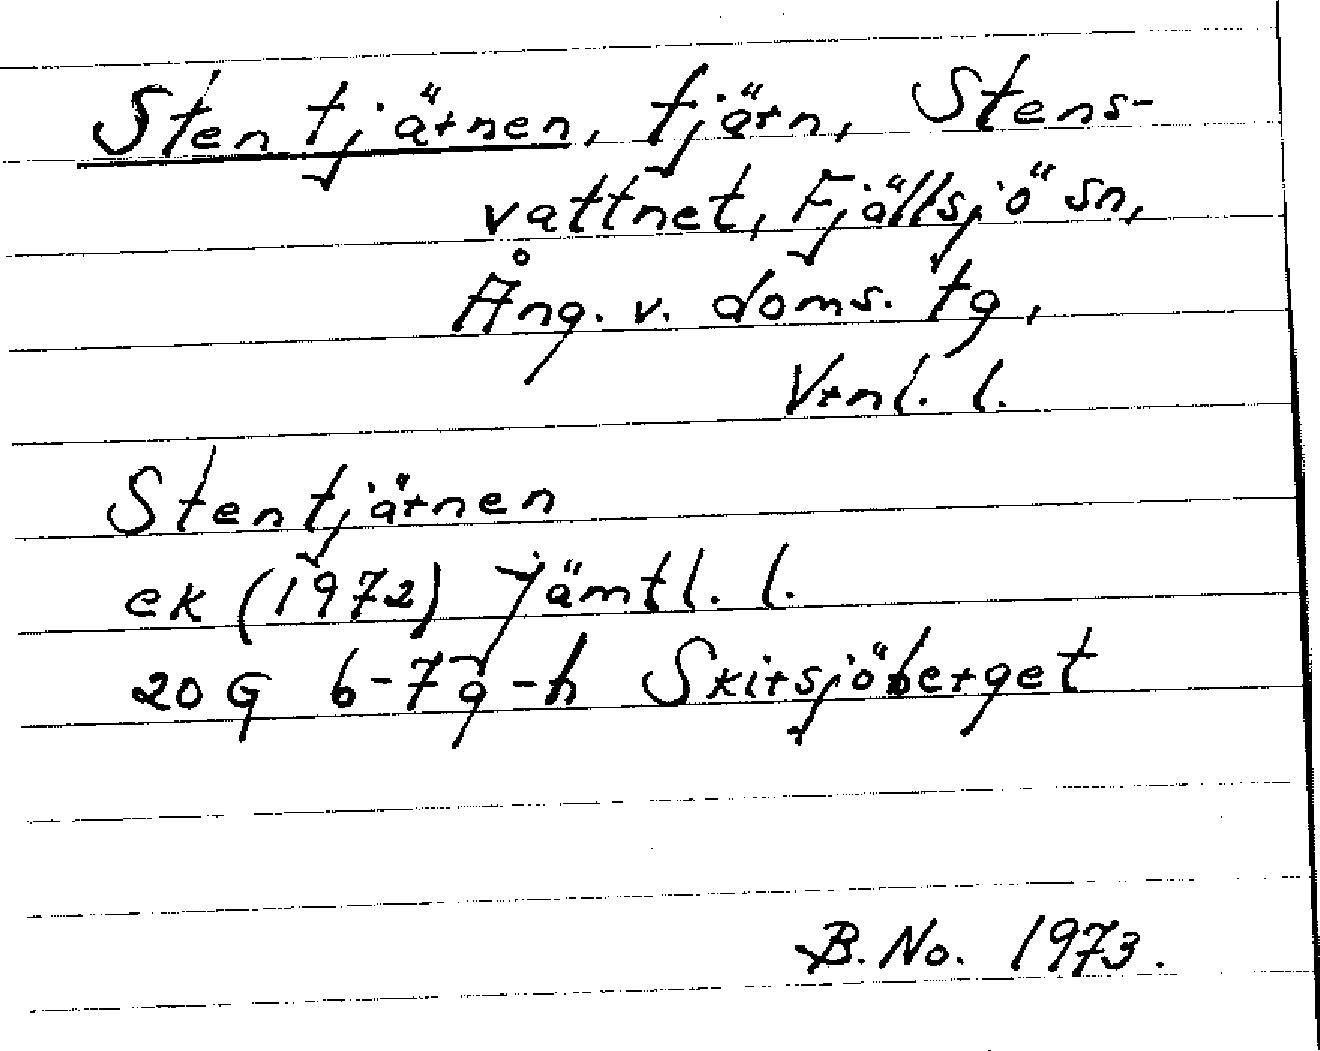 Stentjärnen, tjärn, Stens-
vattnet, Fjällsjö sn,
Ång. v. doms. tg,
Vrnl. l.
Stentjärnen
ek (1972) Jämtl. l.
20 G 6-7g-h Skirsjöberget
B. No. 1973.